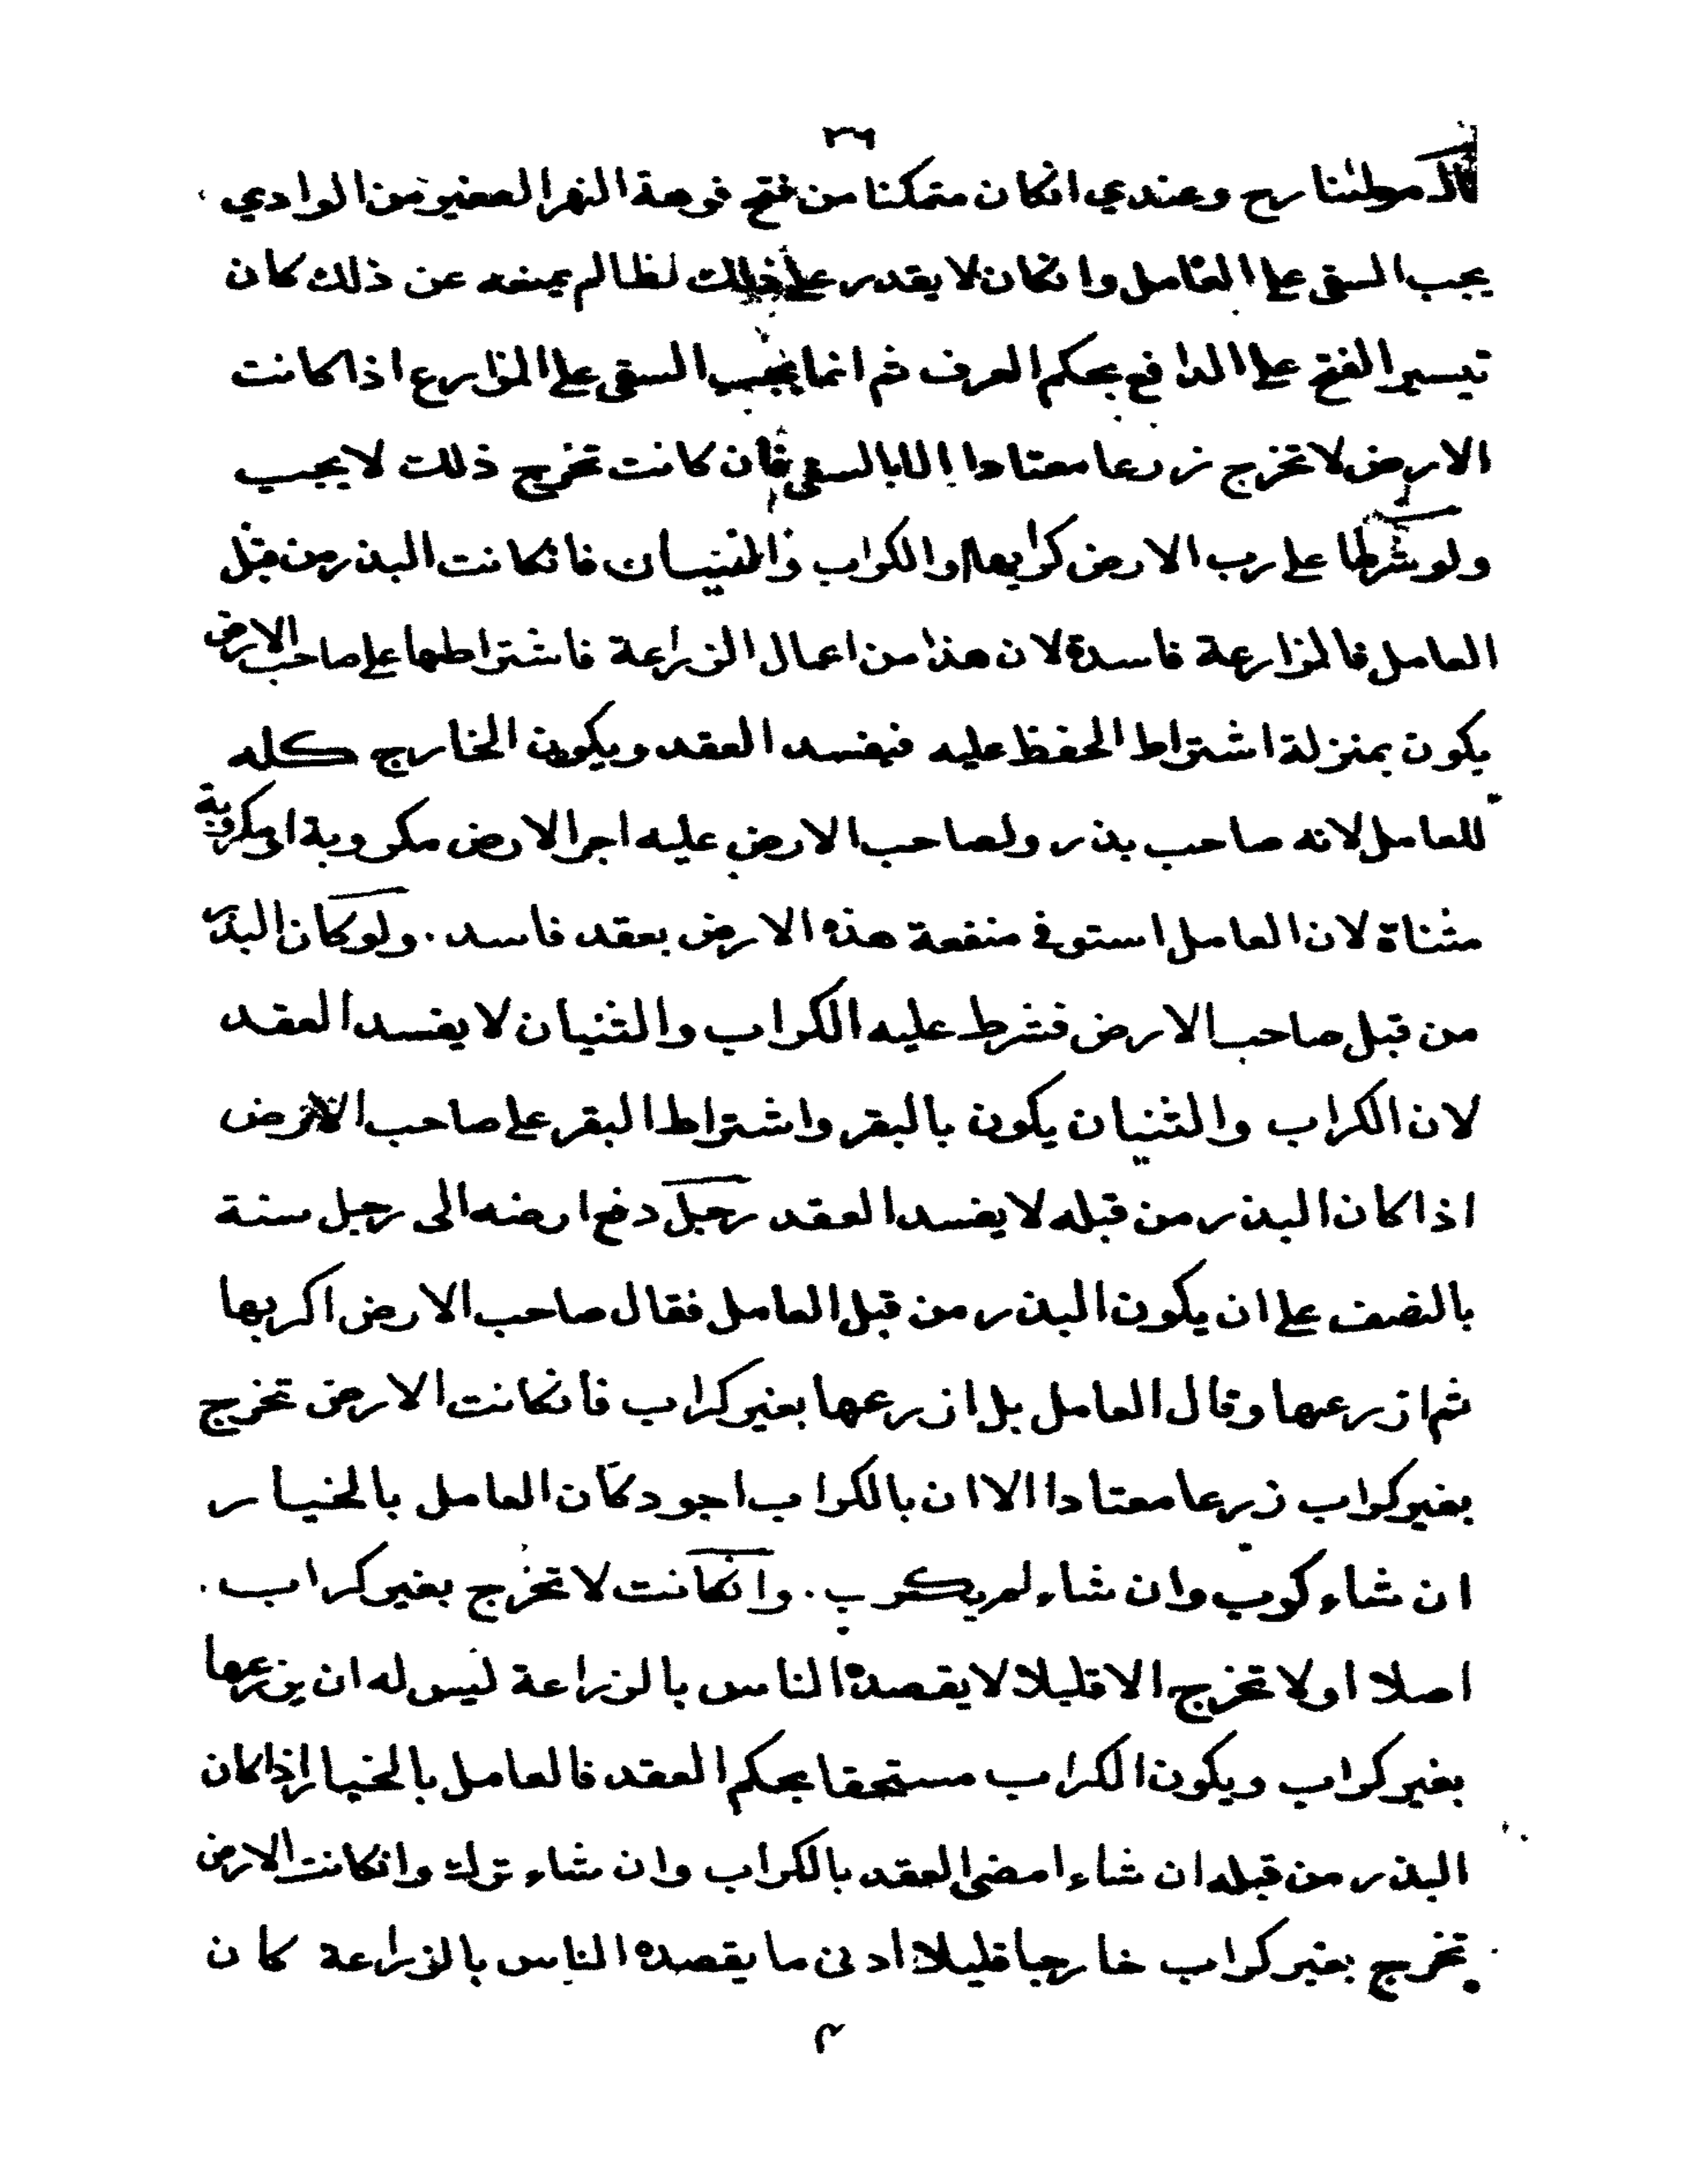 ٣٦
قال مولٰنا رح وعندي انكان متمكنا من فتح فوهة النهر الصغير من الوادي
يجب السقى على العامل وانكان لا يقدر على ذلك لظالم يمنعه عن ذلك كان
تيسير الفتح على الدافع بحكم العرف ثم انما يجب السقى على المزارع اذا كانت
الارض لا تخرج زرعا معتادا الا بالسقى فان كانت تخرج ذلك لا يجب
ولو شرطا على رب الارض كرابها والكراب والثنيان فانكانت البذر من قبل
العامل فالمزارعة فاسدة لان هذا من اعمال الزراعة فاشتراطها على صاحب الارض
يكون بمنزلة اشتراط الحفظ عليه فيفسد العقد ويكون الخارج كله
للعامل لانه صاحب بذر ولصاحب الارض عليه اجر الارض مكروبة او مكروبة
مثناة لان العامل استوفى منفعة هذه الارض بعقد فاسد . ولو كان البذر
من قبل صاحب الارض فشرط عليه الكراب والثنيان لا يفسد العقد
لان الكراب والثنيان يكون بالبقر واشتراط البقر على صاحب الارض
اذا كان البذر من قبله لا يفسد العقد رجل دفع ارضه الى رجل سنة
بالنصف على ان يكون البذر من قبل العامل فقال صاحب الارض اكربها
ثم ازرعها وقال العامل بل ازرعها بغير كراب فانكانت الارض تخرج
بغير كراب زرعا معتادا الا ان بالكراب اجود كان العامل بالخيار
ان شاء كرب وان شاء لم يكرب . وانكانت لا تخرج بغير كراب .
اصلا او لا تخرج الا قليلا لا يقصده الناس بالزراعة ليس له ان يزرعها
بغير كراب ويكون الكراب مستحقا بحكم العقد فالعامل بالخيار اذا كان
البذر من قبله ان شاء امضى العقد بالكراب وان شاء ترك وانكانت الارض
تخرج بغير كراب خارجا قليلا ادنى ما يقصده الناس بالزراعة كان